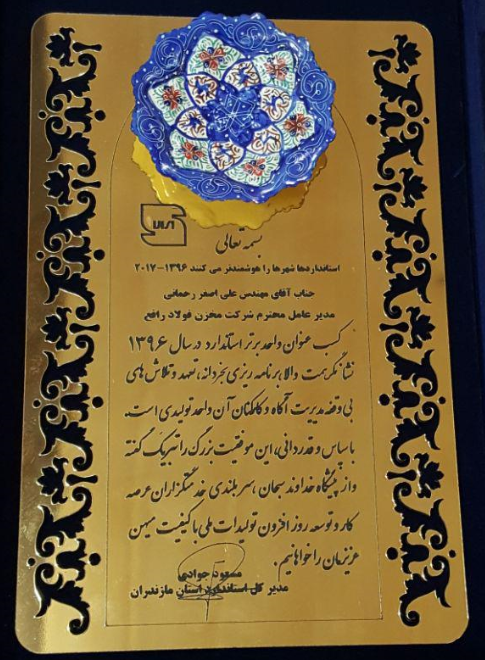 بسمه تعالی
استانداردها شهرها را هوشمندتر می کنند ۱۳۹۶-۲۰۱۷
جناب آقای مهندس علی اصغر رحمانی
مدیر عامل محترم شرکت مخزن فولاد رافع
کسب عنوان واحد برتر استاندارد در سال ۱۳۹۶
نشانگر همت والا، برنامه ریزی بخردانه، تعهد و تلاش های
بی وقفه مدیریت آگاه و کارکنان آن واحد تولیدی است.
با سپاس و قدردانی، این موفقیت بزرگ را تبریک گفته
و از پیشگاه خداوند سبحان، سربلندی خدمتگزاران عرصه
کار و توسعه روز افزون تولیدات ملی با کیفیت میهن
عزیزمان را خواهانیم.
مسعود جوادی
مدیر کل استاندارد استان مازندران